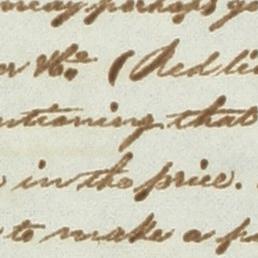 may perhaps go
or Wᵐ. (Red li
ntioning that
in the price.
to make a p